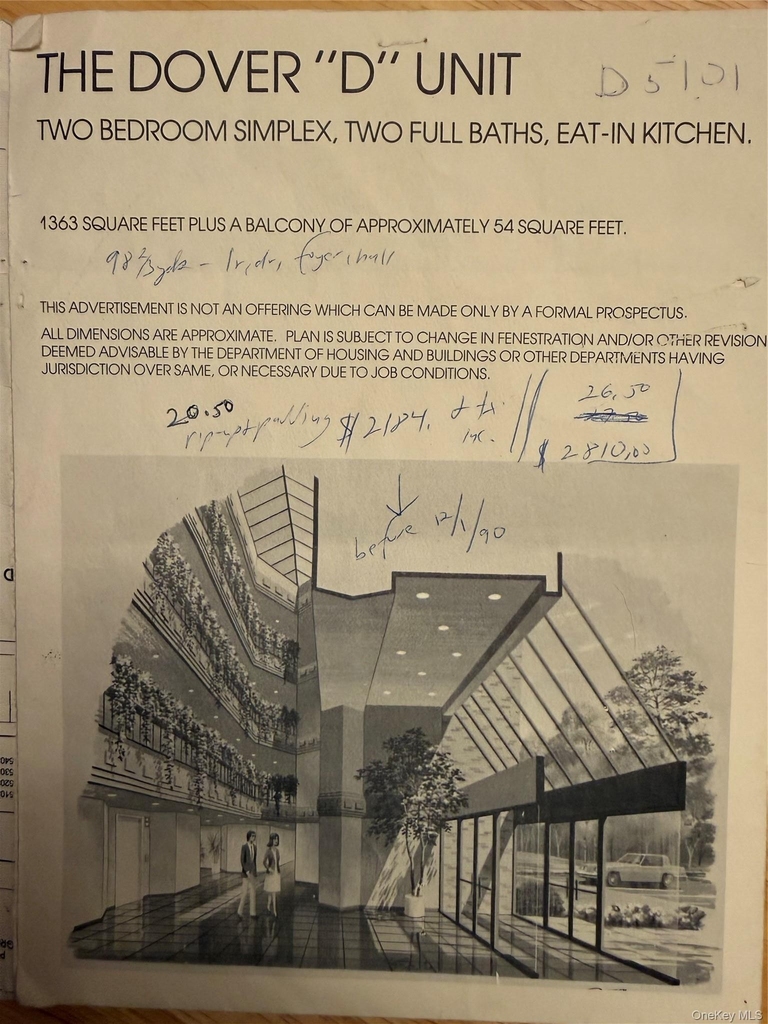 THE DOVER "D" UNIT
D 5101
TWO BEDROOM SIMPLEX, TWO FULL BATHS, EAT-IN KITCHEN.
1363 SQUARE FEET PLUS A BALCONY OF APPROXIMATELY 54 SQUARE FEET.
98 2/3 yds - lr, dr, foyer, hall
THIS ADVERTISEMENT IS NOT AN OFFERING WHICH CAN BE MADE ONLY BY A FORMAL PROSPECTUS.
ALL DIMENSIONS ARE APPROXIMATE. PLAN IS SUBJECT TO CHANGE IN FENESTRATION AND/OR OTHER REVISION
DEEMED ADVISABLE BY THE DEPARTMENT OF HOUSING AND BUILDINGS OR OTHER DEPARTMENTS HAVING
JURISDICTION OVER SAME, OR NECESSARY DUE TO JOB CONDITIONS.
20.50
26.50
$2184.
inc.
$2810.00
before 12/1/90
D
540
530
520
510
OneKey MLS